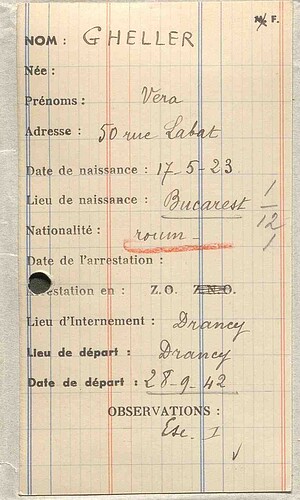 M/ F.
NOM : GHELLER
Née :
Prénoms : Vera
Adresse : 50 rue Labat
Date de naissance : 17-5-23
Lieu de naissance : Bucarest 1
12
Nationalité : roum- 1
Date de l'arrestation :
Arrestation en : Z.O. Z.N.O.
Lieu d'Internement : Drancy
Lieu de départ : Drancy
Date de départ : 28-9-42
OBSERVATIONS :
Esc. I